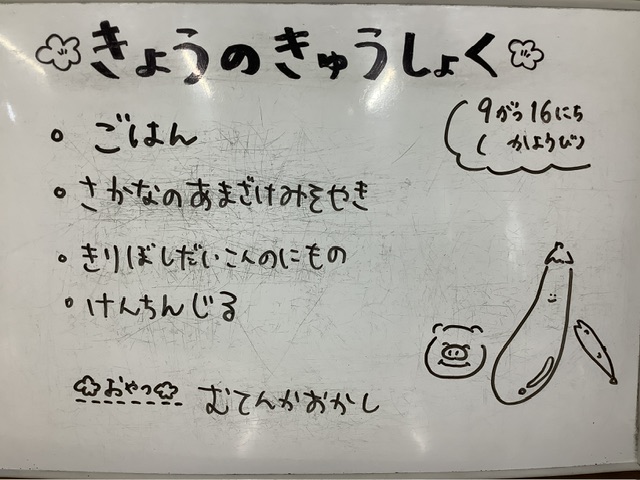 きょうのきゅうしょく
9がつ16にち
(かようび)
・ごはん
・さかなのあまざけみそやき
・きりぼしだいこんのにもの
・けんちんじる
おやつ むてんかおかし